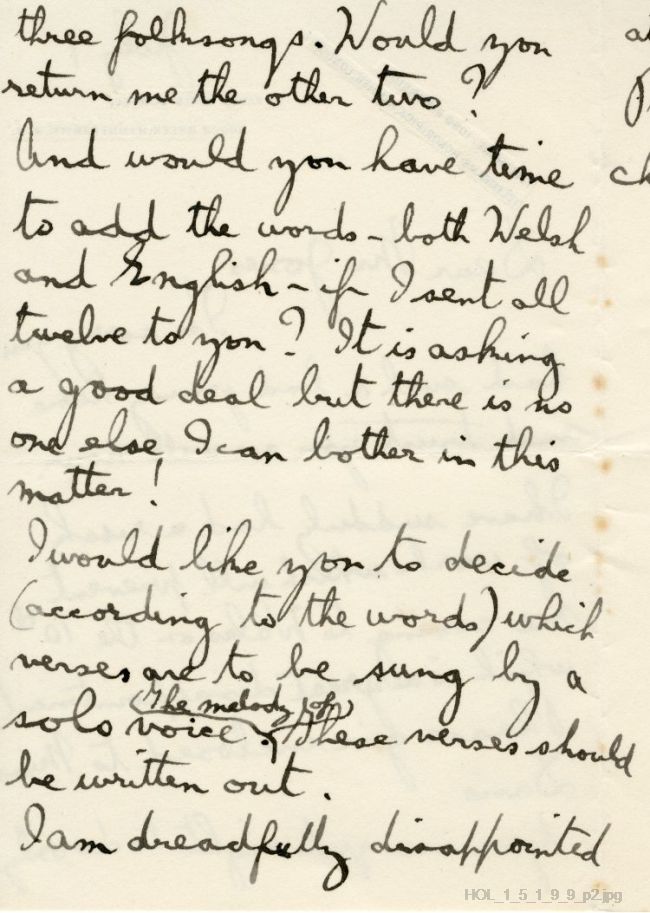 three folksongs. Would you
return me the other two?
And would you have time
to add the words – both Welsh
and English – if I sent all
twelve to you? It is asking
a good deal but there is no
one else I can bother in this
matter!
I would like you to decide
(according to the words) which
verses are to be sung by a
(The melody of)
solo voice. These verses should
be written out.
I am dreadfully disappointed
ch
HOL_1_5_1_9_9_p2.jpg